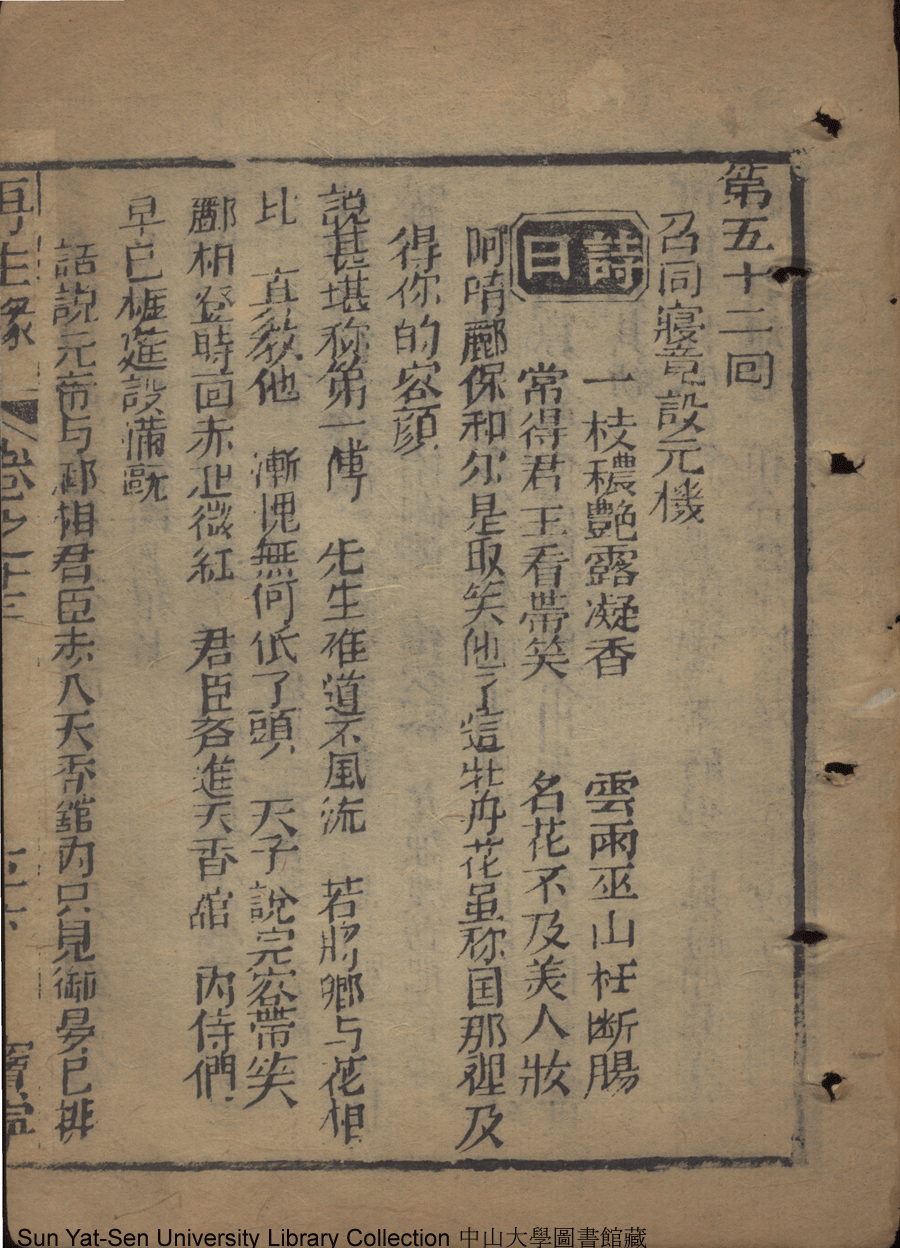 第五十二回
召同寢竟設元機
詩曰
一枝穠艷露凝香　雲雨巫山枉断腸
常得君王看帶笑　名花不及美人妝
呵唷酈保和尔是取笑他了這牡丹花虽称国那裡及
得你的容顔
說甚堪称第一傅　先生准道不風流　若將鄉与花相
比　真教他　漸愧無何低了頭　天子說完容帶笑
酈相登時回赤池微紅　君臣吝進天香舘　内侍們
早已催進設備
話說元帝与酈相君臣赤入天香舘内只見御晏已排
再生緣　卷之十三
Sun Yat-Sen University Library Collection 中山大學圖書館藏